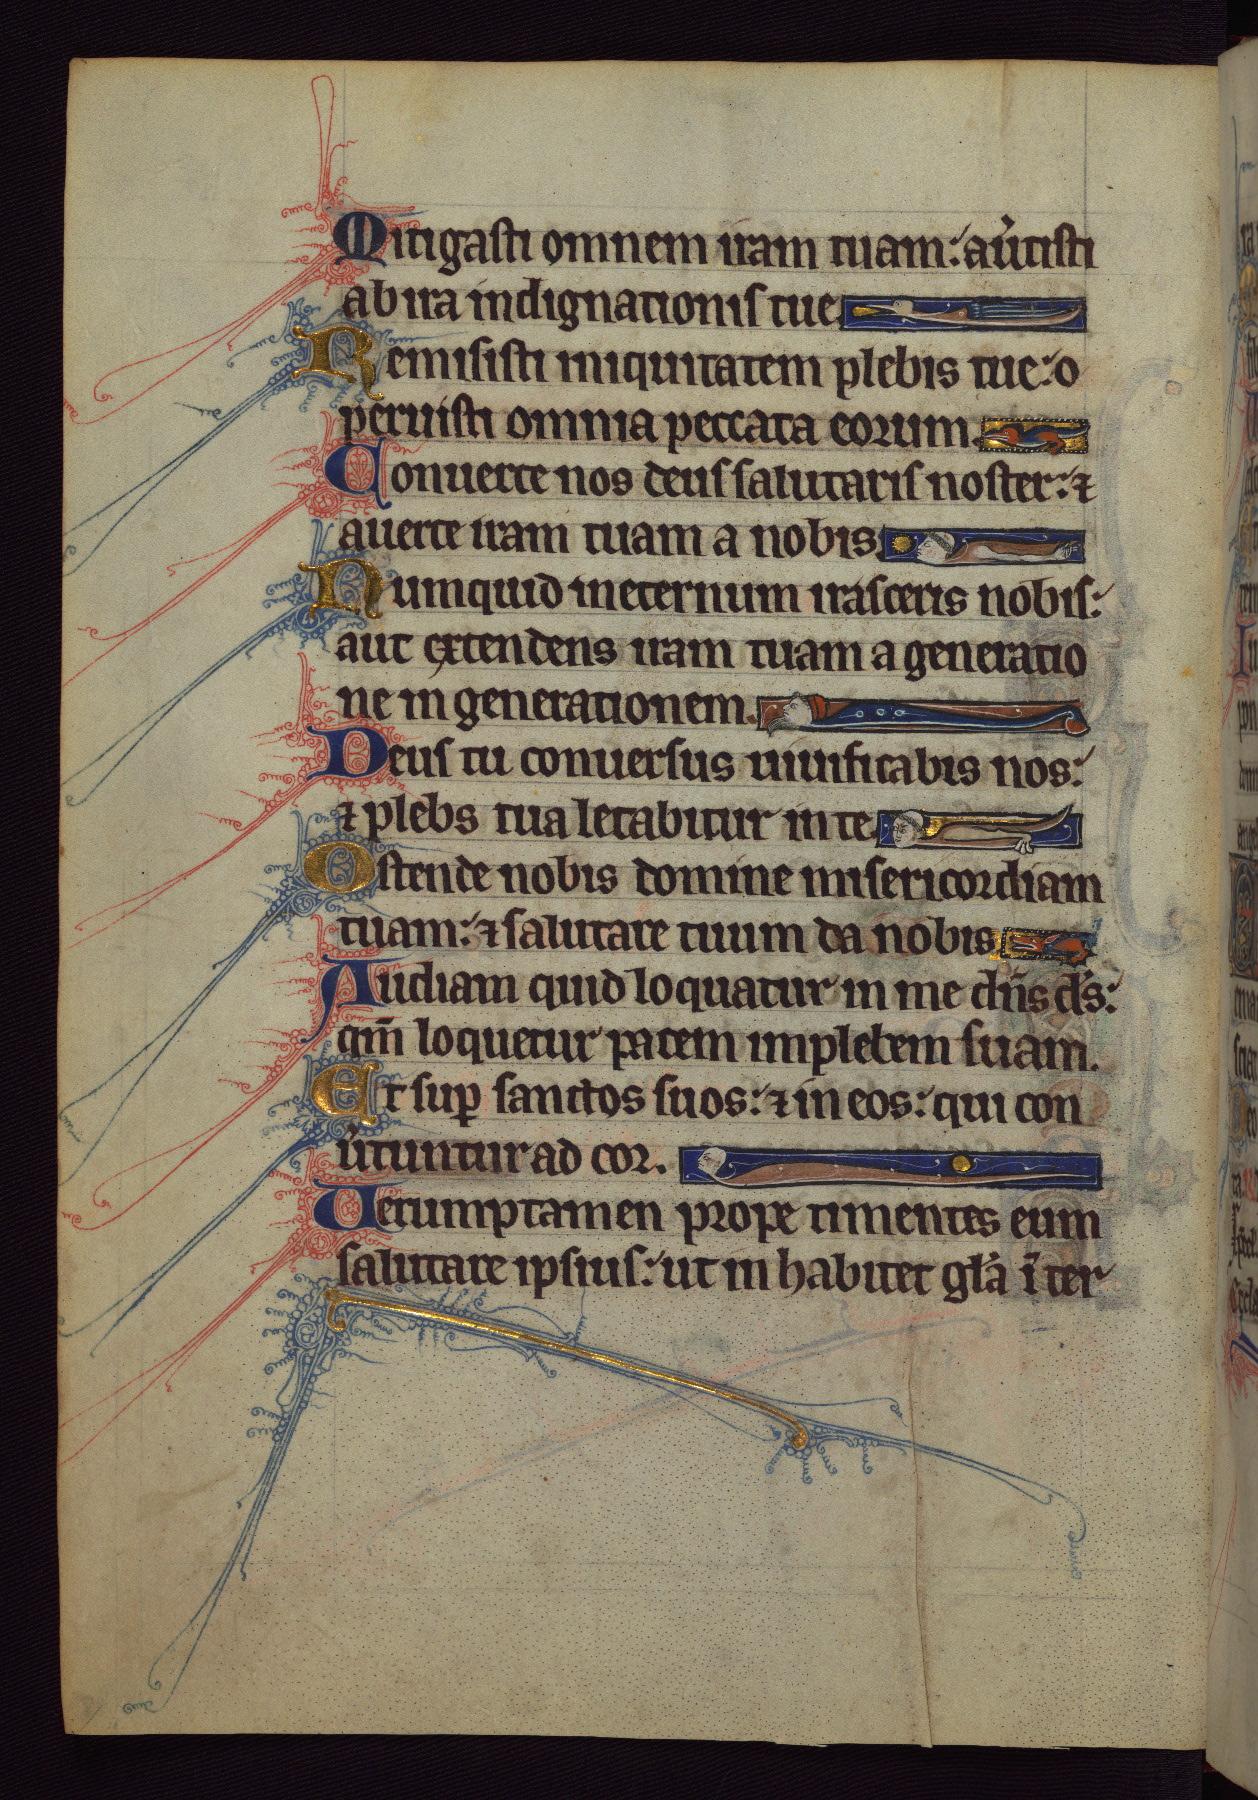 Mitigasti omnem iram tuam: aũtisti
ab ira indignationis tue
Remisisti iniquitatem plebis tue: o
peruisti omnia peccata eorum.
Conuerte nos deus salutaris noster: ⁊
auerte iram tuam a nobis
Numquid ineternum irasceris nobis:
aut extendens iram tuam a generatio
ne in generationem.
Deus tu conuersus uiuificabis nos:
⁊ plebs tua letabitur in te
Ostende nobis domine misericordiam
tuam: ⁊ salutare tuum da nobis
Audiam quid loquatur in me dñs d's:
qm̄ loquetur patem inplebem suam.
Et sup̱ sanctos suos: ⁊ in eos: qui con
u̓tuntur ad cor.
Uerumptamen prope timentes eum
salutare ipsius: ut inhabitet gla̓ ī ter